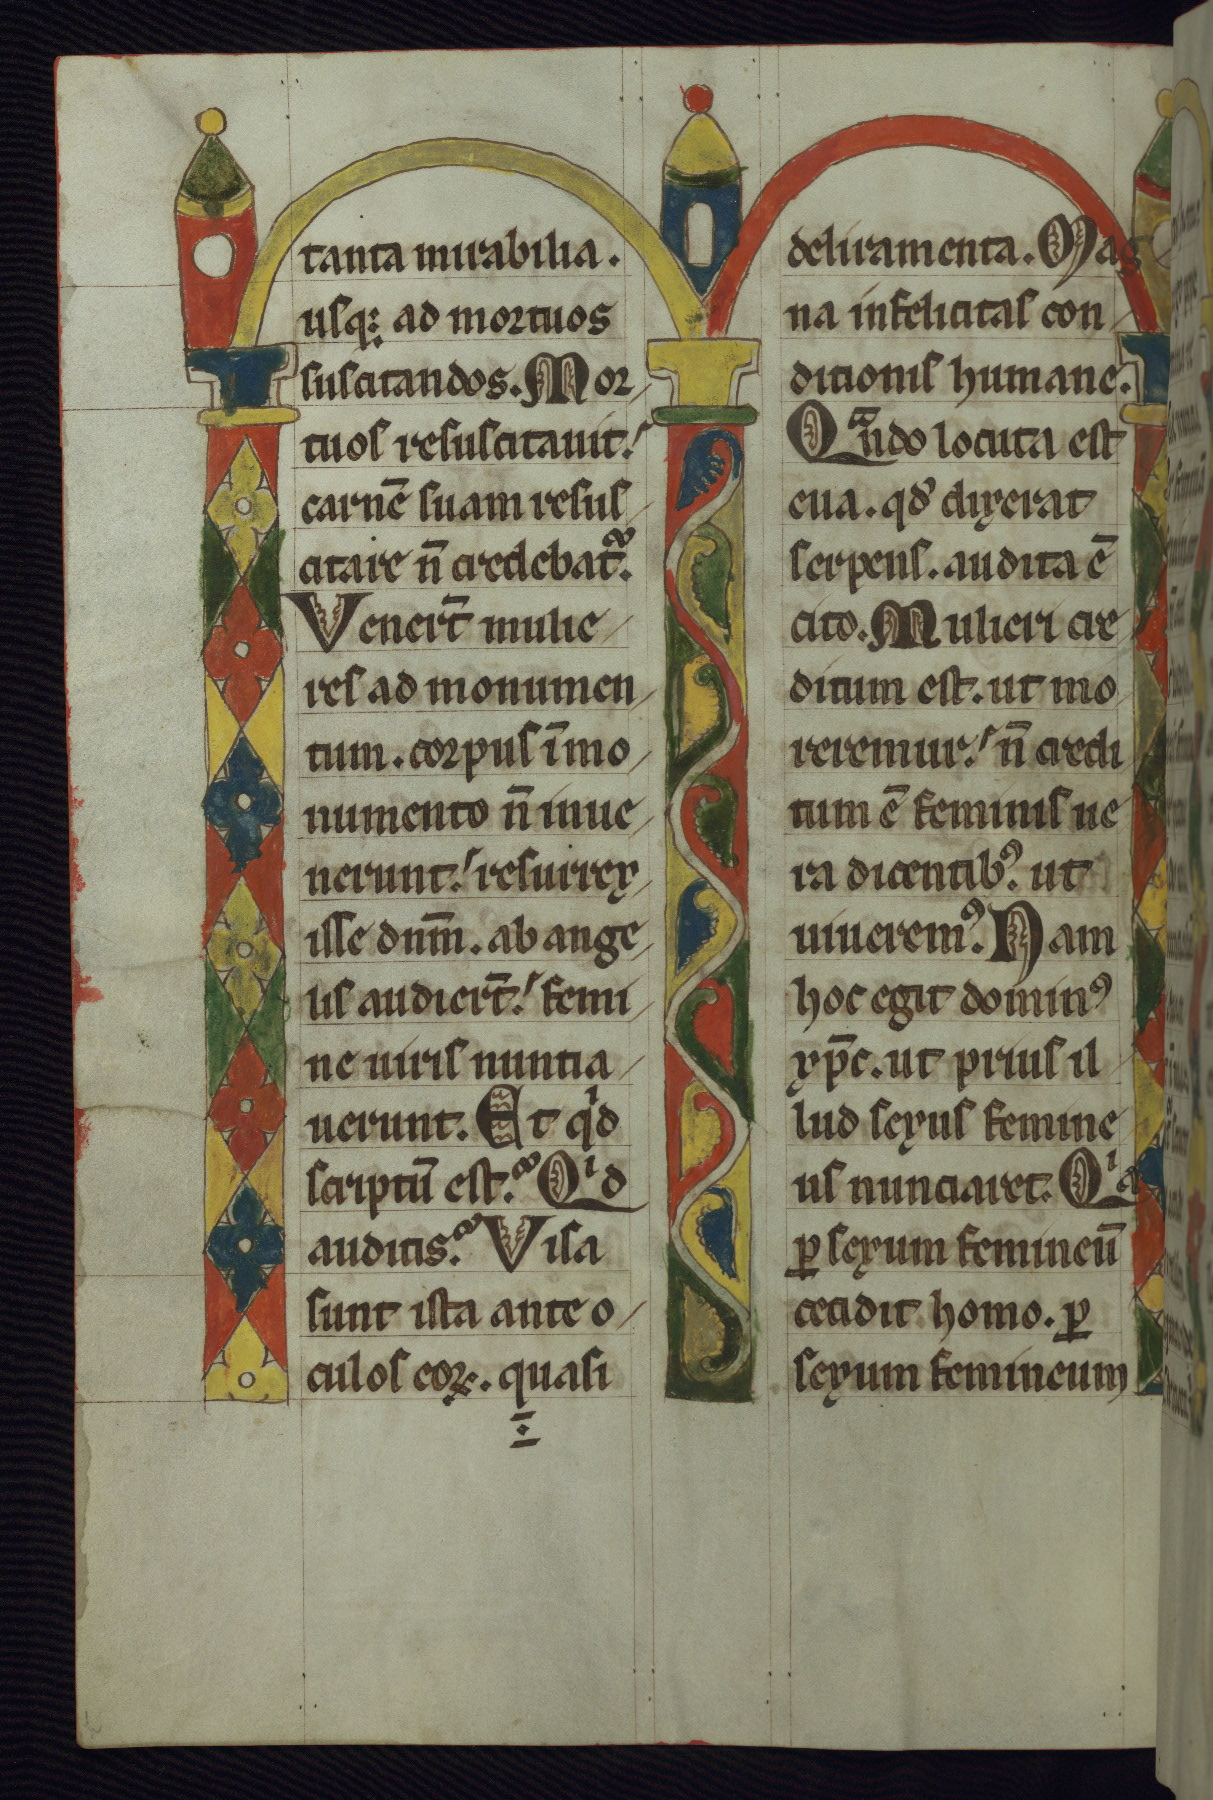 tanta mirabilia.
usq; ad mortuos
suscitandos. Mor
tuos resuscitauit.
carnē suam resus
citare n̄ credebat᷑.
Venert̄ mulie
res ad monumen
tum. corpus ī mo
numento n̄ inue
nerunt. resurrex
isse dn̄m. ab ange
lis audiert̄. femi
ne uiris nuntia
uerunt. Et qͥd
scriptū est. Qͥd
auditis. Visa
sunt ista ante o
culos eoꝝ. quasi
deliramenta. Mag
na infelicitas con
ditionis humane.
Qᷓndo locuta est
eua. qd̓ dixerat
serpens. audita ē
cito. Mulieri cre
ditum est. ut mo
reremur. n̄ credi
tum ē feminis ue
ra dicentibꝰ. ut
uiueremꝰ. Nam
hoc egit dominꝰ
xp̄c. ut prius il
lud sexus femine
us nunciaret. Qͥa
ꝑ sexum femineū
cecidit homo. ꝑ
sexum femineum